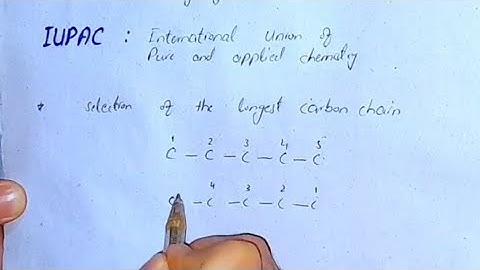 IUPAC : International Union of
Pure and applied chemistry
* selection of the longest carbon chain
1 2 3 4 5
C – C – C – C – C
4 3 2 1
C – C – C – C – C